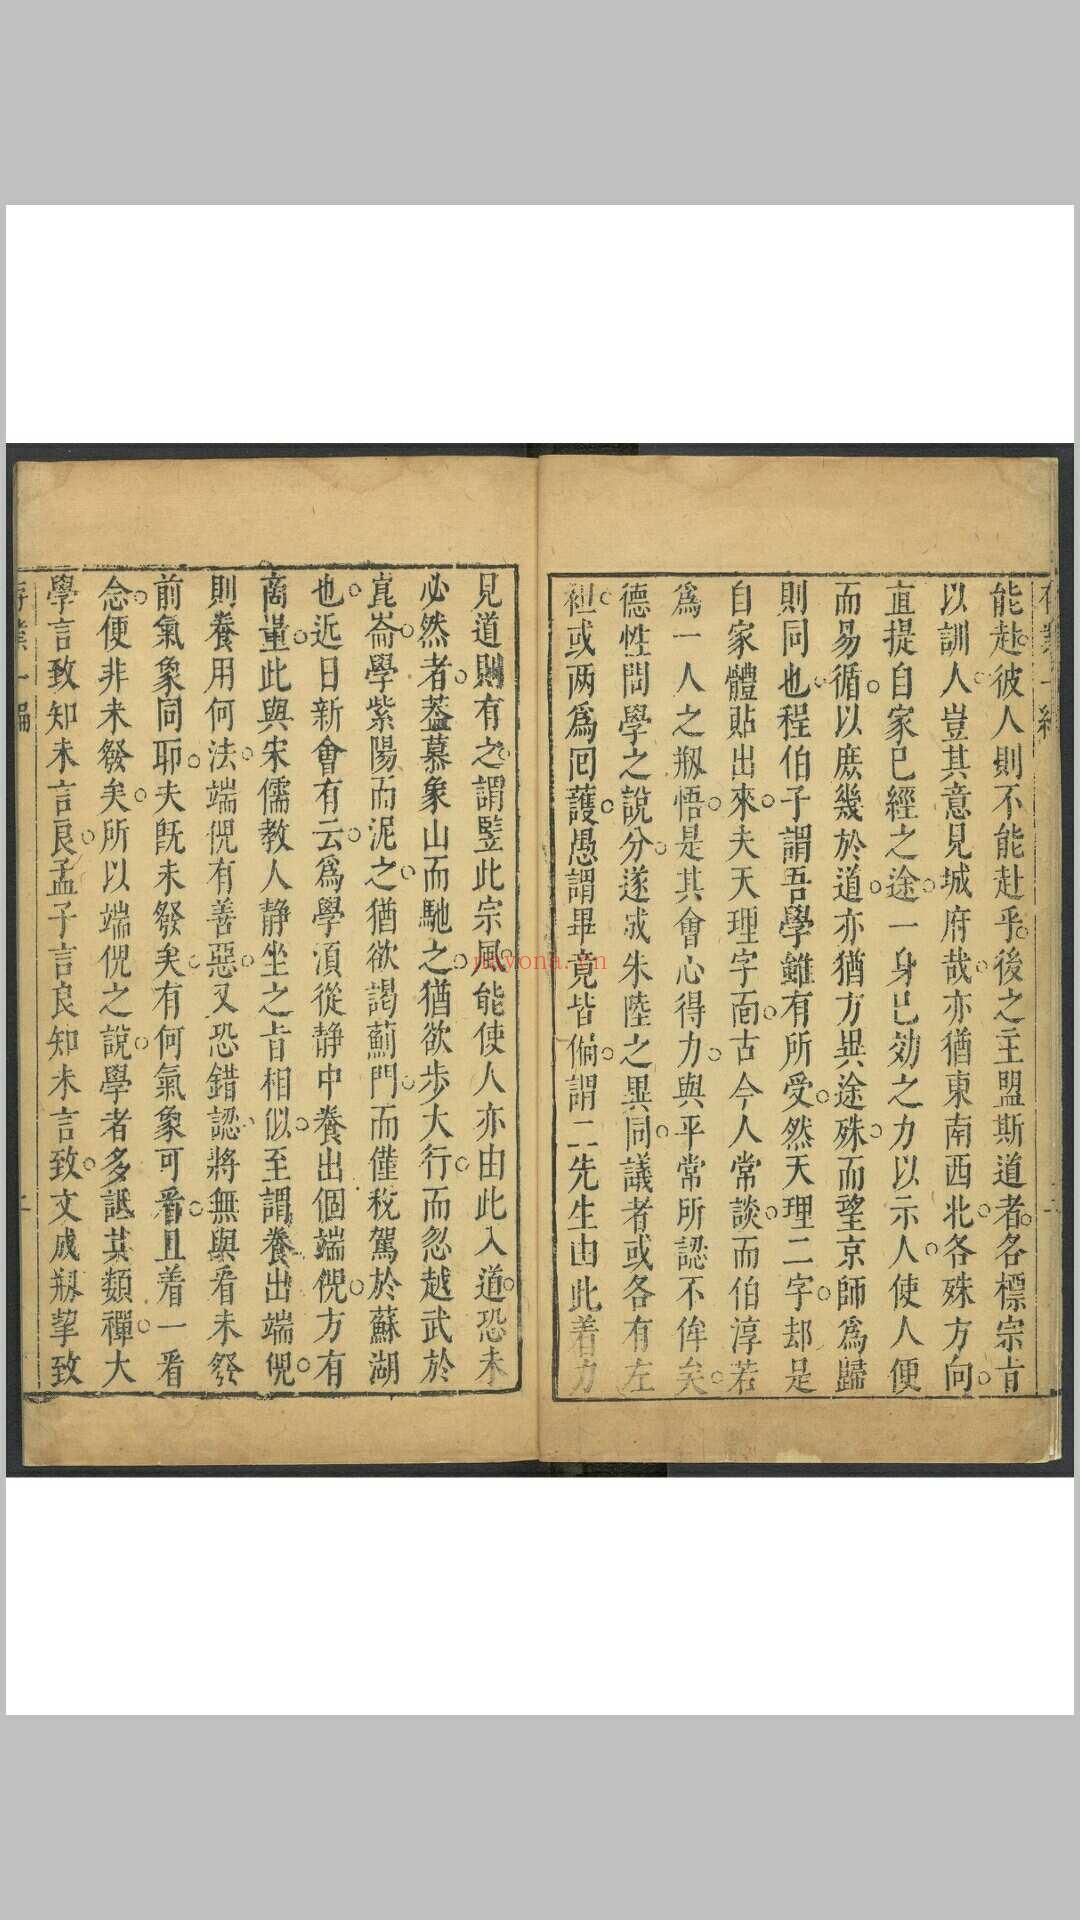 能赴彼人則不能赴乎後之主盟斯道者各標宗㫖
以訓人豈其意見城府哉亦猶東南西北各殊方向
直提自家已經之途一身已効之力以示人使人便
而易循以庶幾於道亦猶方異途殊而望京師為歸
則同也程伯子謂吾學雖有所受然天理二字却是
自家體貼出來夫天理字面古今人常談而伯淳若
為一人之剏悟是其會心得力與平常所認不侔矣
德性問學之說分遂成朱陸之異同議者或各有左
袒或两為回護愚謂畢竟皆偏謂二先生由此着力
見道則有之謂豎此宗風能使人亦由此入道恐未
必然者葢慕象山而馳之猶欲步大行而忽越武於
崑崙學紫陽而泥之猶欲謁薊門而僅稅駕於蘇湖
也近日新會有云為學須從静中養出個端倪方有
商量此與宋儒教人静坐之㫖相似至謂養出端倪
則養用何法端倪有善惡又恐錯認將無與看未發
前氣象同耶夫旣未發矣有何氣象可看且着一看
念便非未發矣所以端倪之說學者多詆其類禪大
學言致知未言良孟子言良知未言致文成剏挈致
nayona.cn